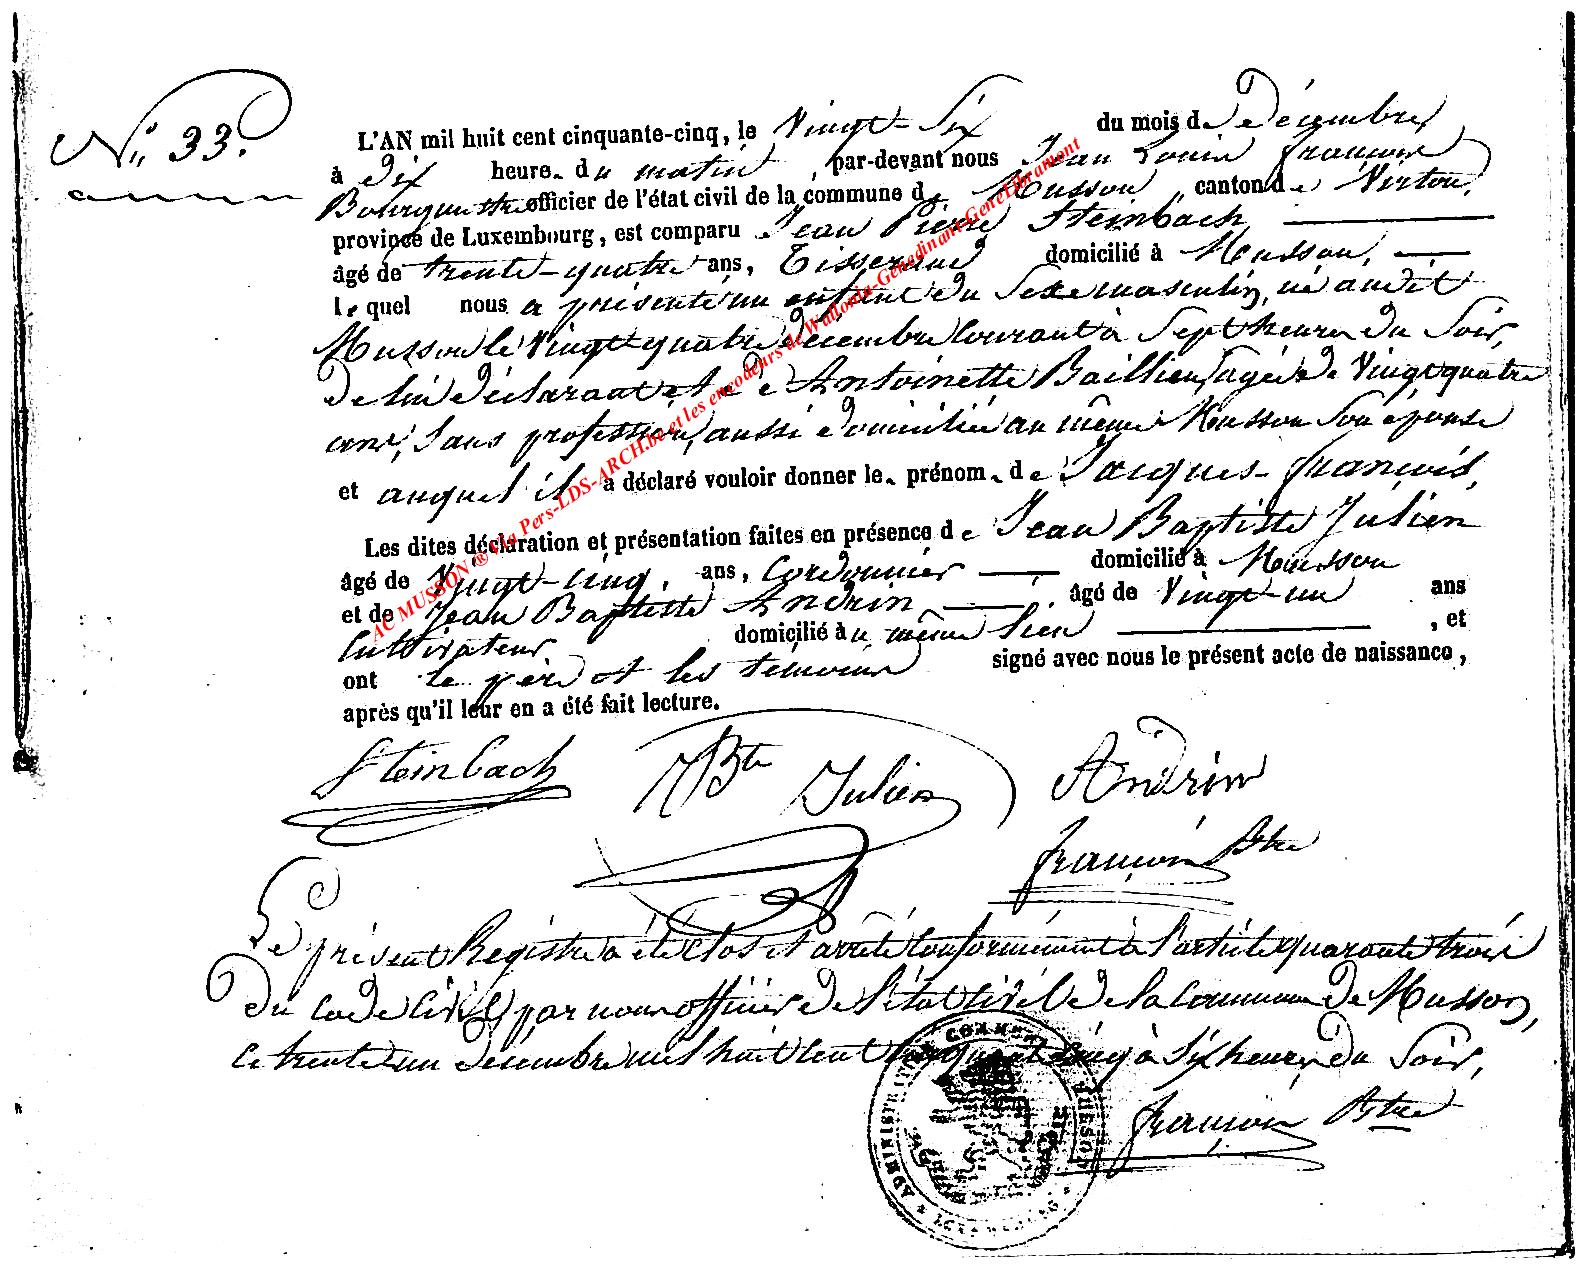 N° 33.
L'AN mil huit cent cinquante-cinq, le Vingt-Six du mois de Décembre,
à Dix heure du matin, par-devant nous Jean Louis François
Bourgmestre officier de l'état civil de la commune de Musson, canton de Virton,
province de Luxembourg, est comparu Jean Pierre Steinbach
âgé de trente-quatre ans, Tisserand domicilié à Musson,
lequel nous a présenté un enfant du Sexe masculin, né audit
Musson le Vingt quatre décembre Courant à Sept heures du Soir,
de lui déclarant et de Antoinette Baillieu, agée de Vingt quatre
ans, Sans profession, aussi domiciliée au même Musson Son épouse
et auquel il a déclaré vouloir donner le prénom de Jacques-François,
Les dites déclaration et présentation faites en présence de Jean Baptiste Julien
âgé de Vingt-cinq, ans, Cordonnier domicilié à Musson
et de Jean Baptiste Andrin âgé de Vingt-un ans
Cultivateur domicilié au même lieu, et
ont le père et les temoins signé avec nous le présent acte de naissance,
après qu'il leur en a été fait lecture.
AC MUSSON ® Via Pers-LDS-ARCH.be et les encodeurs de Wallonia-Genedinant-GeneLibramont
Steinbach JBte Julien Andrin
François Btre
Le présent Registre a été clos et arrêté Conformément à l'article quarante trois
du Code Civil, par nous officier de l'état Civil de la Commune de Musson,
ce trente un décembre mil huit cent cinquante cinq à Six heures du Soir,
François Btre
ADMINISTRATION COMMUNALE MUSSON
LUXEMBOURG